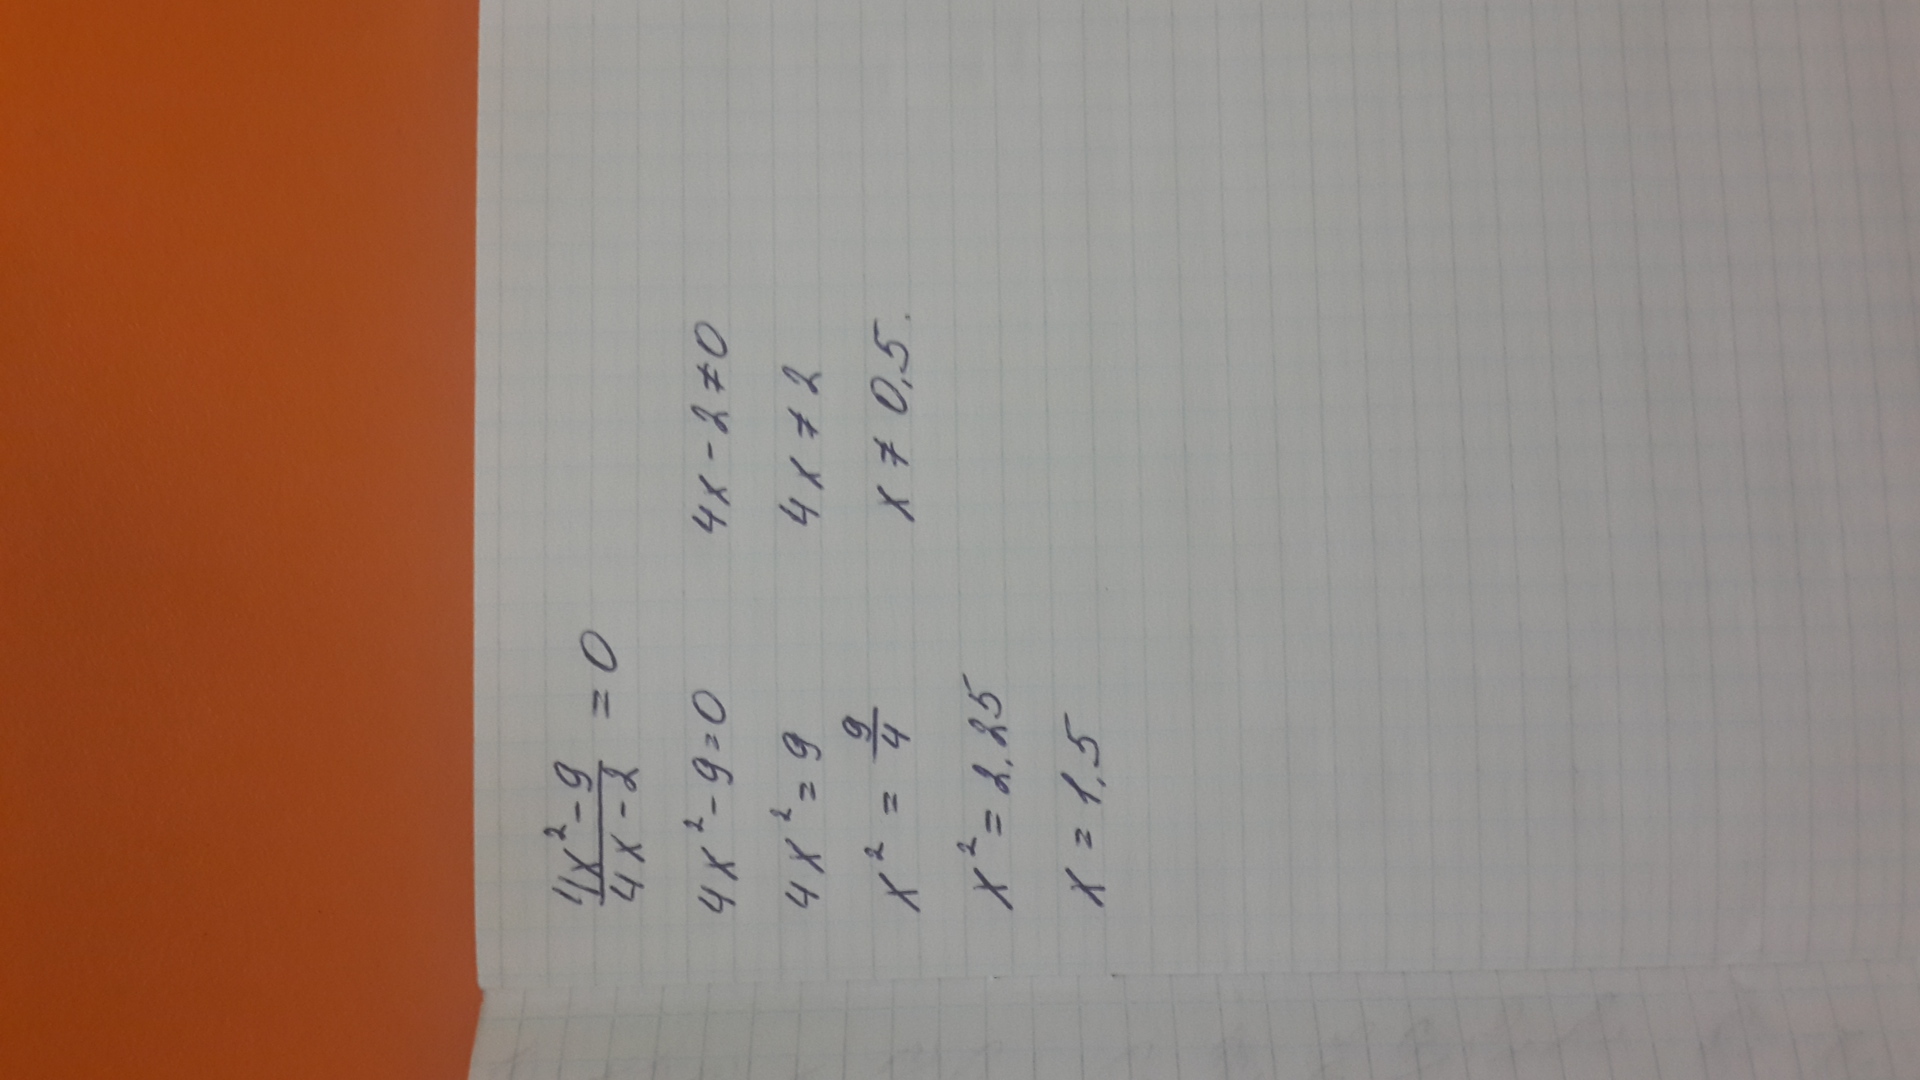 4x² - 9 / 4x - 2 = 0
4x² - 9 = 0    4x - 2 ≠ 0
4x² = 9    4x ≠ 2
x² = 9/4    x ≠ 0,5.
x² = 2,25
x = 1,5